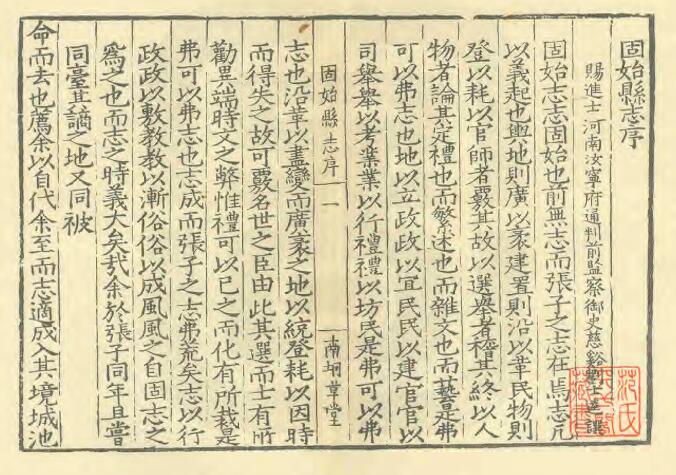 固始縣志序
賜進士河南汝寧府通判前監察御史慈谿
固始志志固始也前無志而張子之志在焉志凡
以義起也輿地則廣以袤建置則沿以革民物則
登以耗以官師者覈其故以選舉者稽其終以人
物者論其定禮也而繁述也而雜文也而藝是弗
可以弗志也地以立政政以宜民民以建官官以
司舉舉以考業業以行禮禮以坊民是弗可以弗
固始縣志序
一
南垌草堂
志也沿革以盡變而廣袤之地以統登耗以因時
而得失之故可覈名世之臣由此其選而士有所
勸異端時文之弊惟禮可以已之而化有所裁是
弗可以弗志也志成而張子之志弗荒矣志以行
政政以敷教教以漸俗俗以成風風之自固志之
爲之也而志之時義大矣哉余於張子同年且嘗
同臺其謫之地又同被
命而去也薦余以自代余至而志適成入其境城池
范氏
藏書